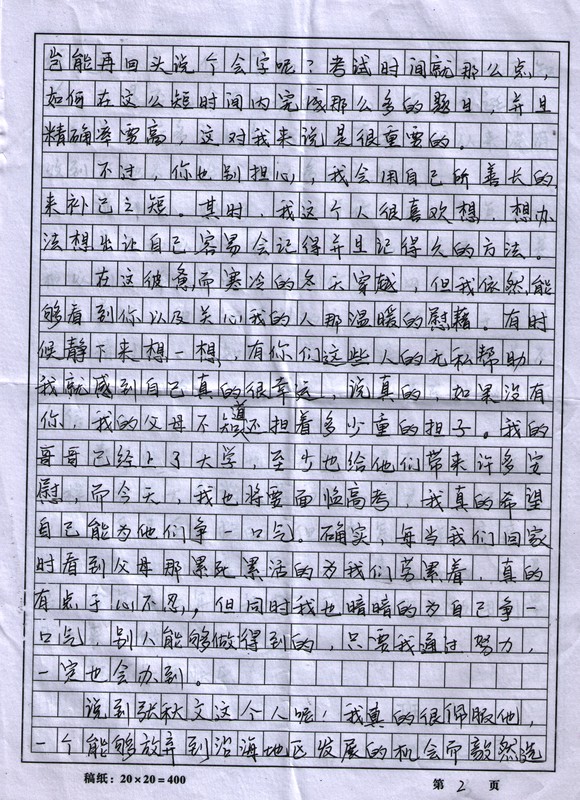 岂能再回头说个会字呢？考试时间就那么点，
如何在这么短时间内完成那么多的题目，并且
精确率要高，这对我来说是很重要的。
不过，你也别担心，我会用自己所善长的，
来补己之短。其时，我这个人很喜欢想，想办
法想出让自己容易会记得并且记得久的方法。
在这疲惫而寒冷的冬天穿越，但我依然能
够看到你以及关心我的人那温暖的慰藉。有时
候静下来想一想，有你们这些人的无私帮助，
我就感到自己真的很幸运，说真的，如果没有
你，我的父母不知道还担着多少重的担子。我的
哥哥已经上了大学，至少也给他们带来许多安
慰，而今天，我也将要面临高考，我真的希望
自己能为他们争一口气。确实，每当我们回家
时看到父母那累死累活的为我们劳累着，真的
有点于心不忍，但同时我也暗暗的为自己争一
口气，别人能够做得到的，只要我通过努力，
一定也会办到。
说到张秋文这个人呢，我真的很佩服他，
一个能够放弃到沿海地区发展的机会而毅然选
稿纸：20×20=400 第 2 页